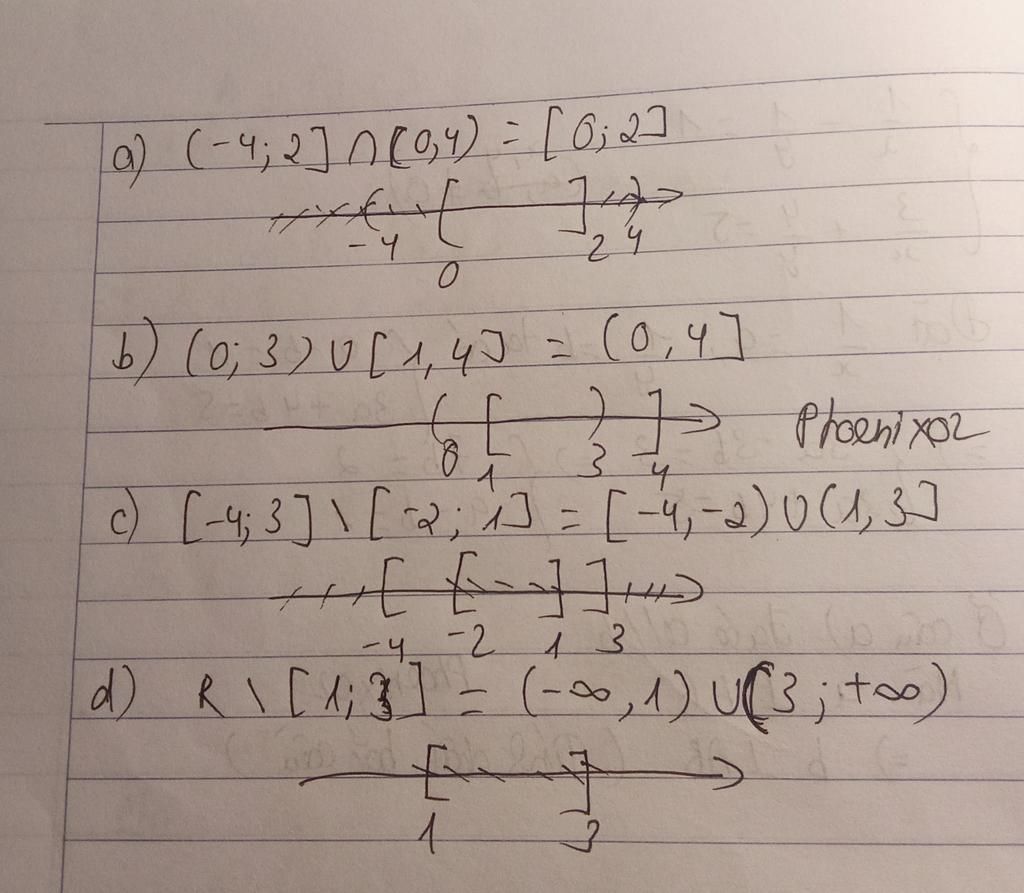 a) (-4; 2] ∩ [0,4) = [0; 2]
-4 0 2 4
b) (0; 3) ∪ [1,4] = (0,4]
0 1 3 4
Phoenix02
c) [-4; 3] \ [-2; 1] = [-4,-2) ∪ (1,3]
-4 -2 1 3
d) R \ [1; 3] = (-∞,1) ∪ (3; +∞)
1 3